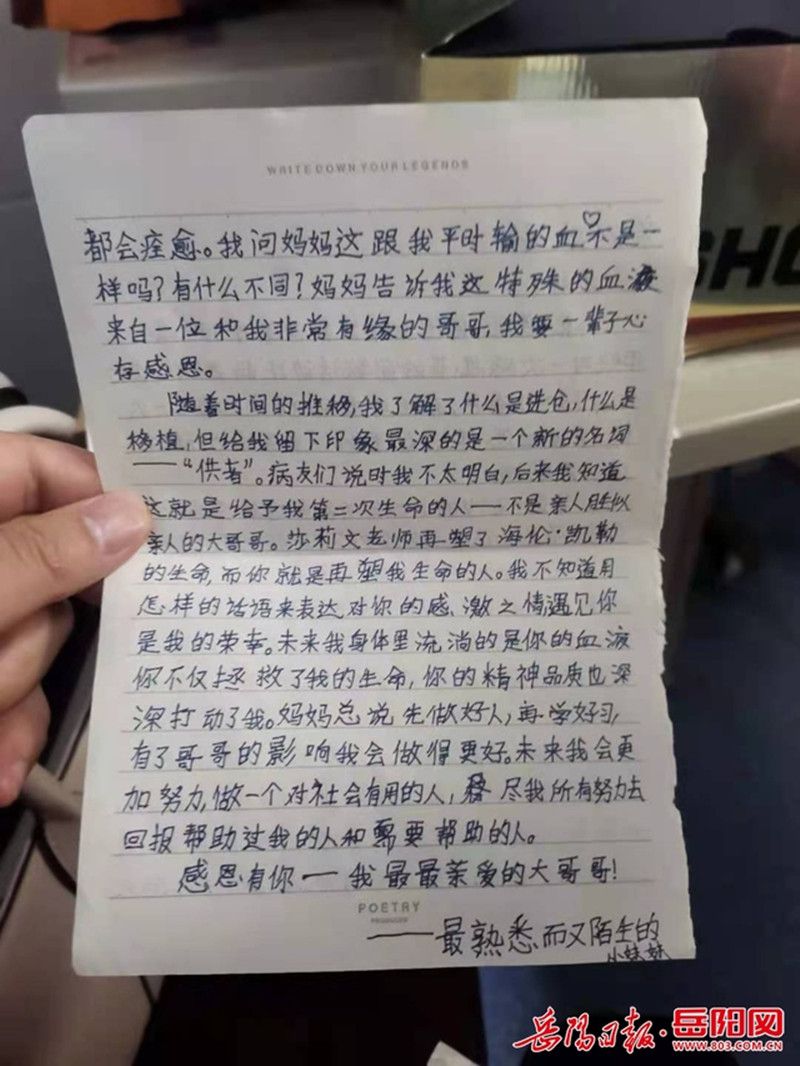 WRITE DOWN YOUR LEGENDS
都会痊愈。我问妈妈这跟我平时输的血♡不是一
样吗?有什么不同?妈妈告诉我这特殊的血液
来自一位和我非常有缘的哥哥,我要一辈子心
存感恩。
随着时间的推移,我了解了什么是进仓,什么是
移植,但给我留下印象最深的是一个新的名词
——“供者”。病友们说时我不太明白,后来我知道
这就是给予我第二次生命的人——不是亲人胜似
亲人的大哥哥。莎莉文老师再塑了海伦·凯勒
的生命,而你就是再塑我生命的人。我不知道用
怎样的话语来表达对你的感激之情遇见你
是我的荣幸。未来我身体里流淌的是你的血液
你不仅拯救了我的生命,你的精神品质也深
深打动了我。妈妈总说先做好人,再学好习,
有了哥哥的影响我会做得更好。未来我会更
加努力,做一个对社会有用的人,尽我所有努力去
回报帮助过我的人和需要帮助的人。
感恩有你——我最最亲爱的大哥哥!
POETRY
PRODUCER
——最熟悉而又陌生的
小妹妹
SHO
岳阳日报·岳阳网
WWW.803.COM.CN